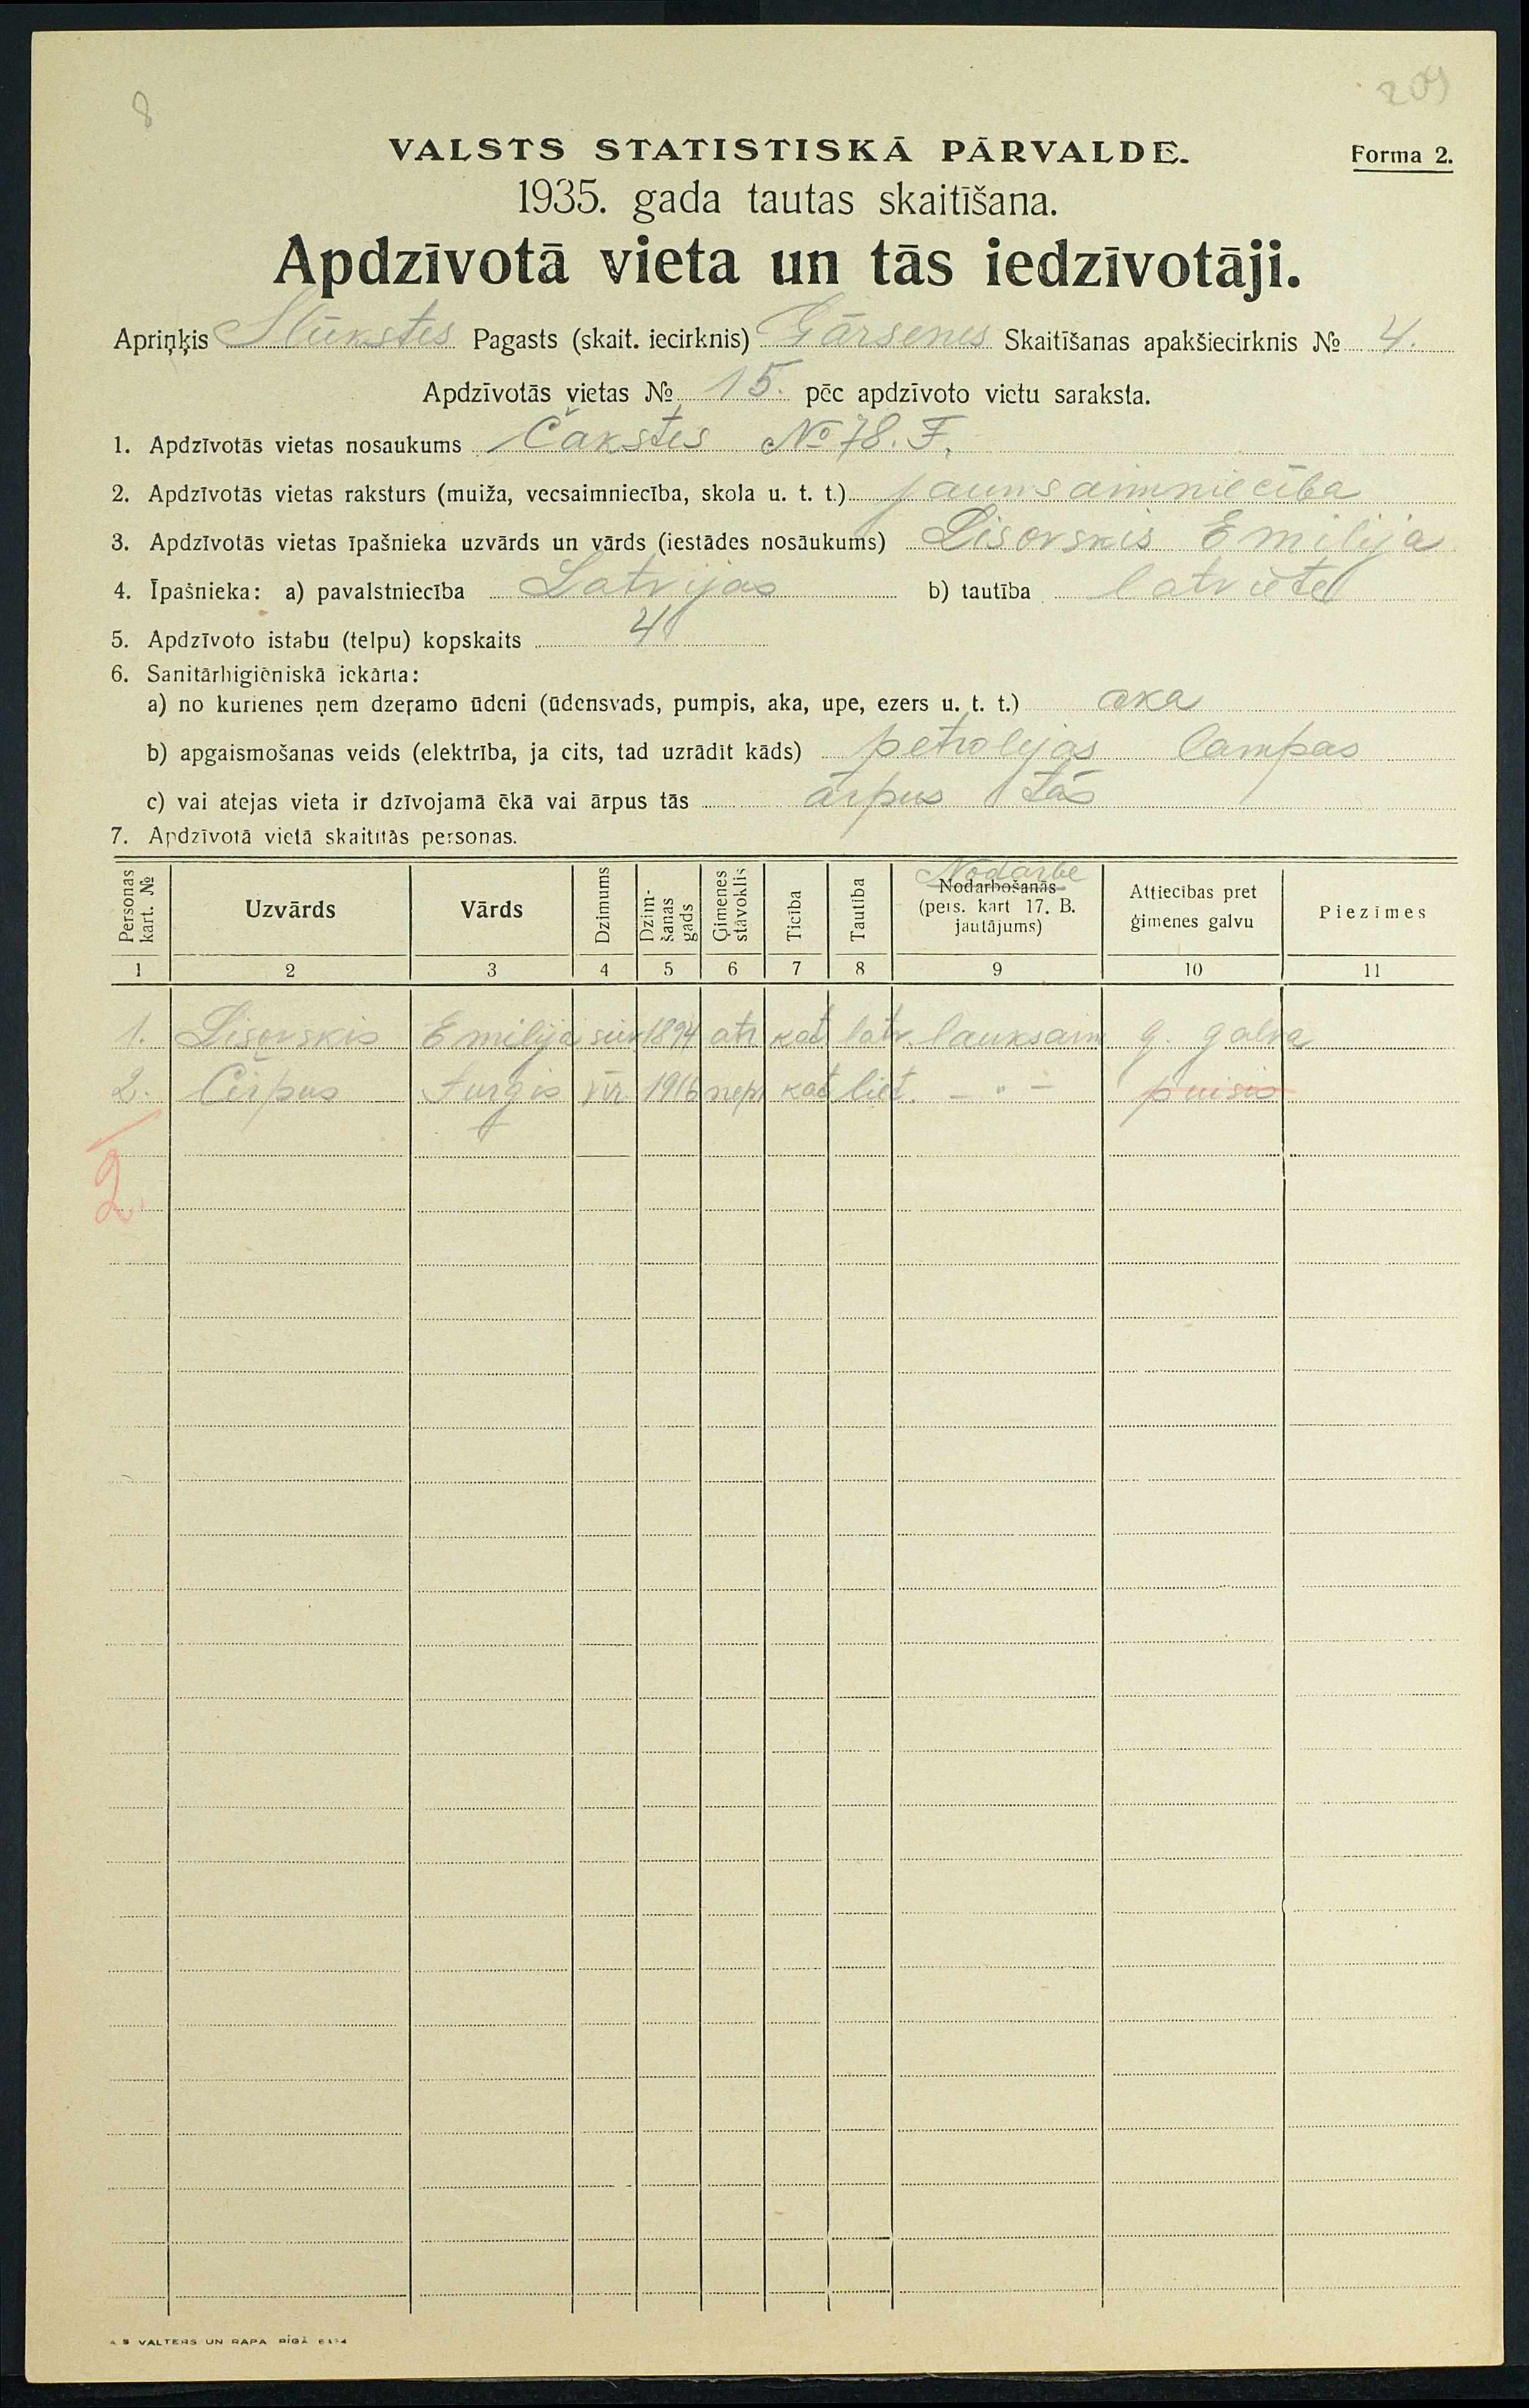 8
209
VALSTS STATISTISKĀ PĀRVALDE.
Forma 2.
1935. gada tautas skaitīšana.
Apdzīvotā vieta un tās iedzīvotāji.
Apriņķis Ilūkstes Pagasts (skait. iecirknis) Gārsenes Skaitīšanas apakšiecirknis № 4.
Apdzīvotās vietas № 15. pēc apdzīvoto vietu saraksta.
1. Apdzīvotās vietas nosaukums Čakstes № 78. F.
2. Apdzīvotās vietas raksturs (muiža, vecsaimniecība, skola u. t. t.) jaunsaimniecība
3. Apdzīvotās vietas īpašnieka uzvārds un vārds (iestādes nosaukums) Lisovskis Emilija
4. Īpašnieka: a) pavalstniecība Latvijas b) tautība latviete
5. Apdzīvoto istabu (telpu) kopskaits 4
6. Sanitārhigiēniskā iekārta:
a) no kurienes ņem dzeramo ūdeni (ūdensvads, pumpis, aka, upe, ezers u. t. t.) aka
b) apgaismošanas veids (elektrība, ja cits, tad uzrādīt kāds) petrolejas lampas
c) vai atejas vieta ir dzīvojamā ēkā vai ārpus tās ārpus tās
7. Apdzīvotā vietā skaitītās personas.
Personas kart. № Uzvārds Vārds Dzimums Dzimšanas gads Ģimenes stāvoklis Ticība Tautība Nodarbe Nodarbošanās (pers. kart 17. B. jautājums) Attiecības pret ģimenes galvu Piezīmes
1 2 3 4 5 6 7 8 9 10 11
1. Lisovskis Emilija siev 1894 atr kat latv. lauksaim g. galva
2. Cirpus Jurgis vīr. 1916 nepr kat liet. – " – puisis
2.
A S VALTERS UN RAPA RĪGĀ